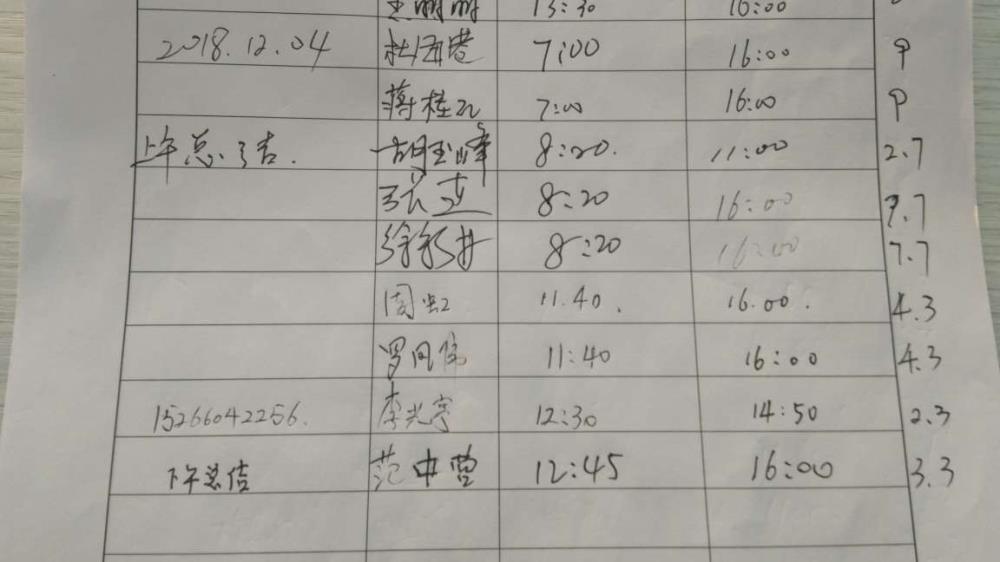 13:30 16:00
2018.12.04 7:00 16:00 9
蒋桂 7:00 16:00 9
上午总结. 胡玉峰 8:20. 11:00 2.7
张 8:20 16:00 7.7
徐 8:20 16:00 7.7
周虹 11.40. 16.00. 4.3
罗凤 11:40 16:00 4.3
15266042256. 李兴 12:30 14:50 2.3
下午总结 范中营 12:45 16:00 3.3